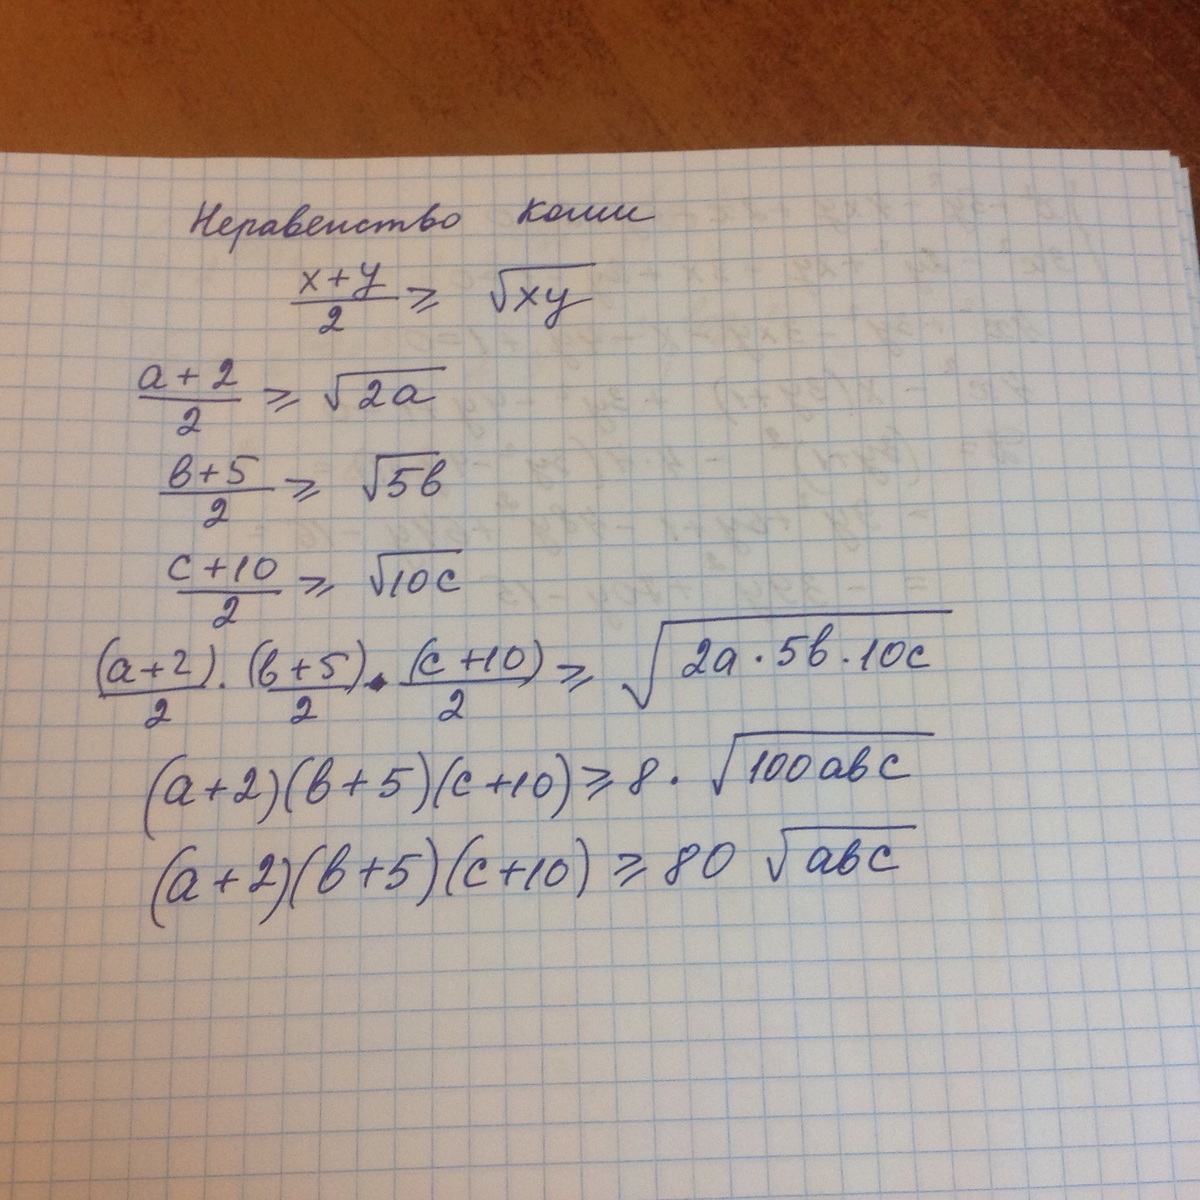 Неравенство Коши
(x+y)/2 ≥ √xy
(a+2)/2 ≥ √2a
(в+5)/2 ≥ √5в
(c+10)/2 ≥ √10c
(a+2)/2 · (в+5)/2 · (c+10)/2 ≥ √2a·5в·10c
(a+2)(в+5)(c+10) ≥ 8·√100aвc
(a+2)(в+5)(c+10) ≥ 80 √aвc